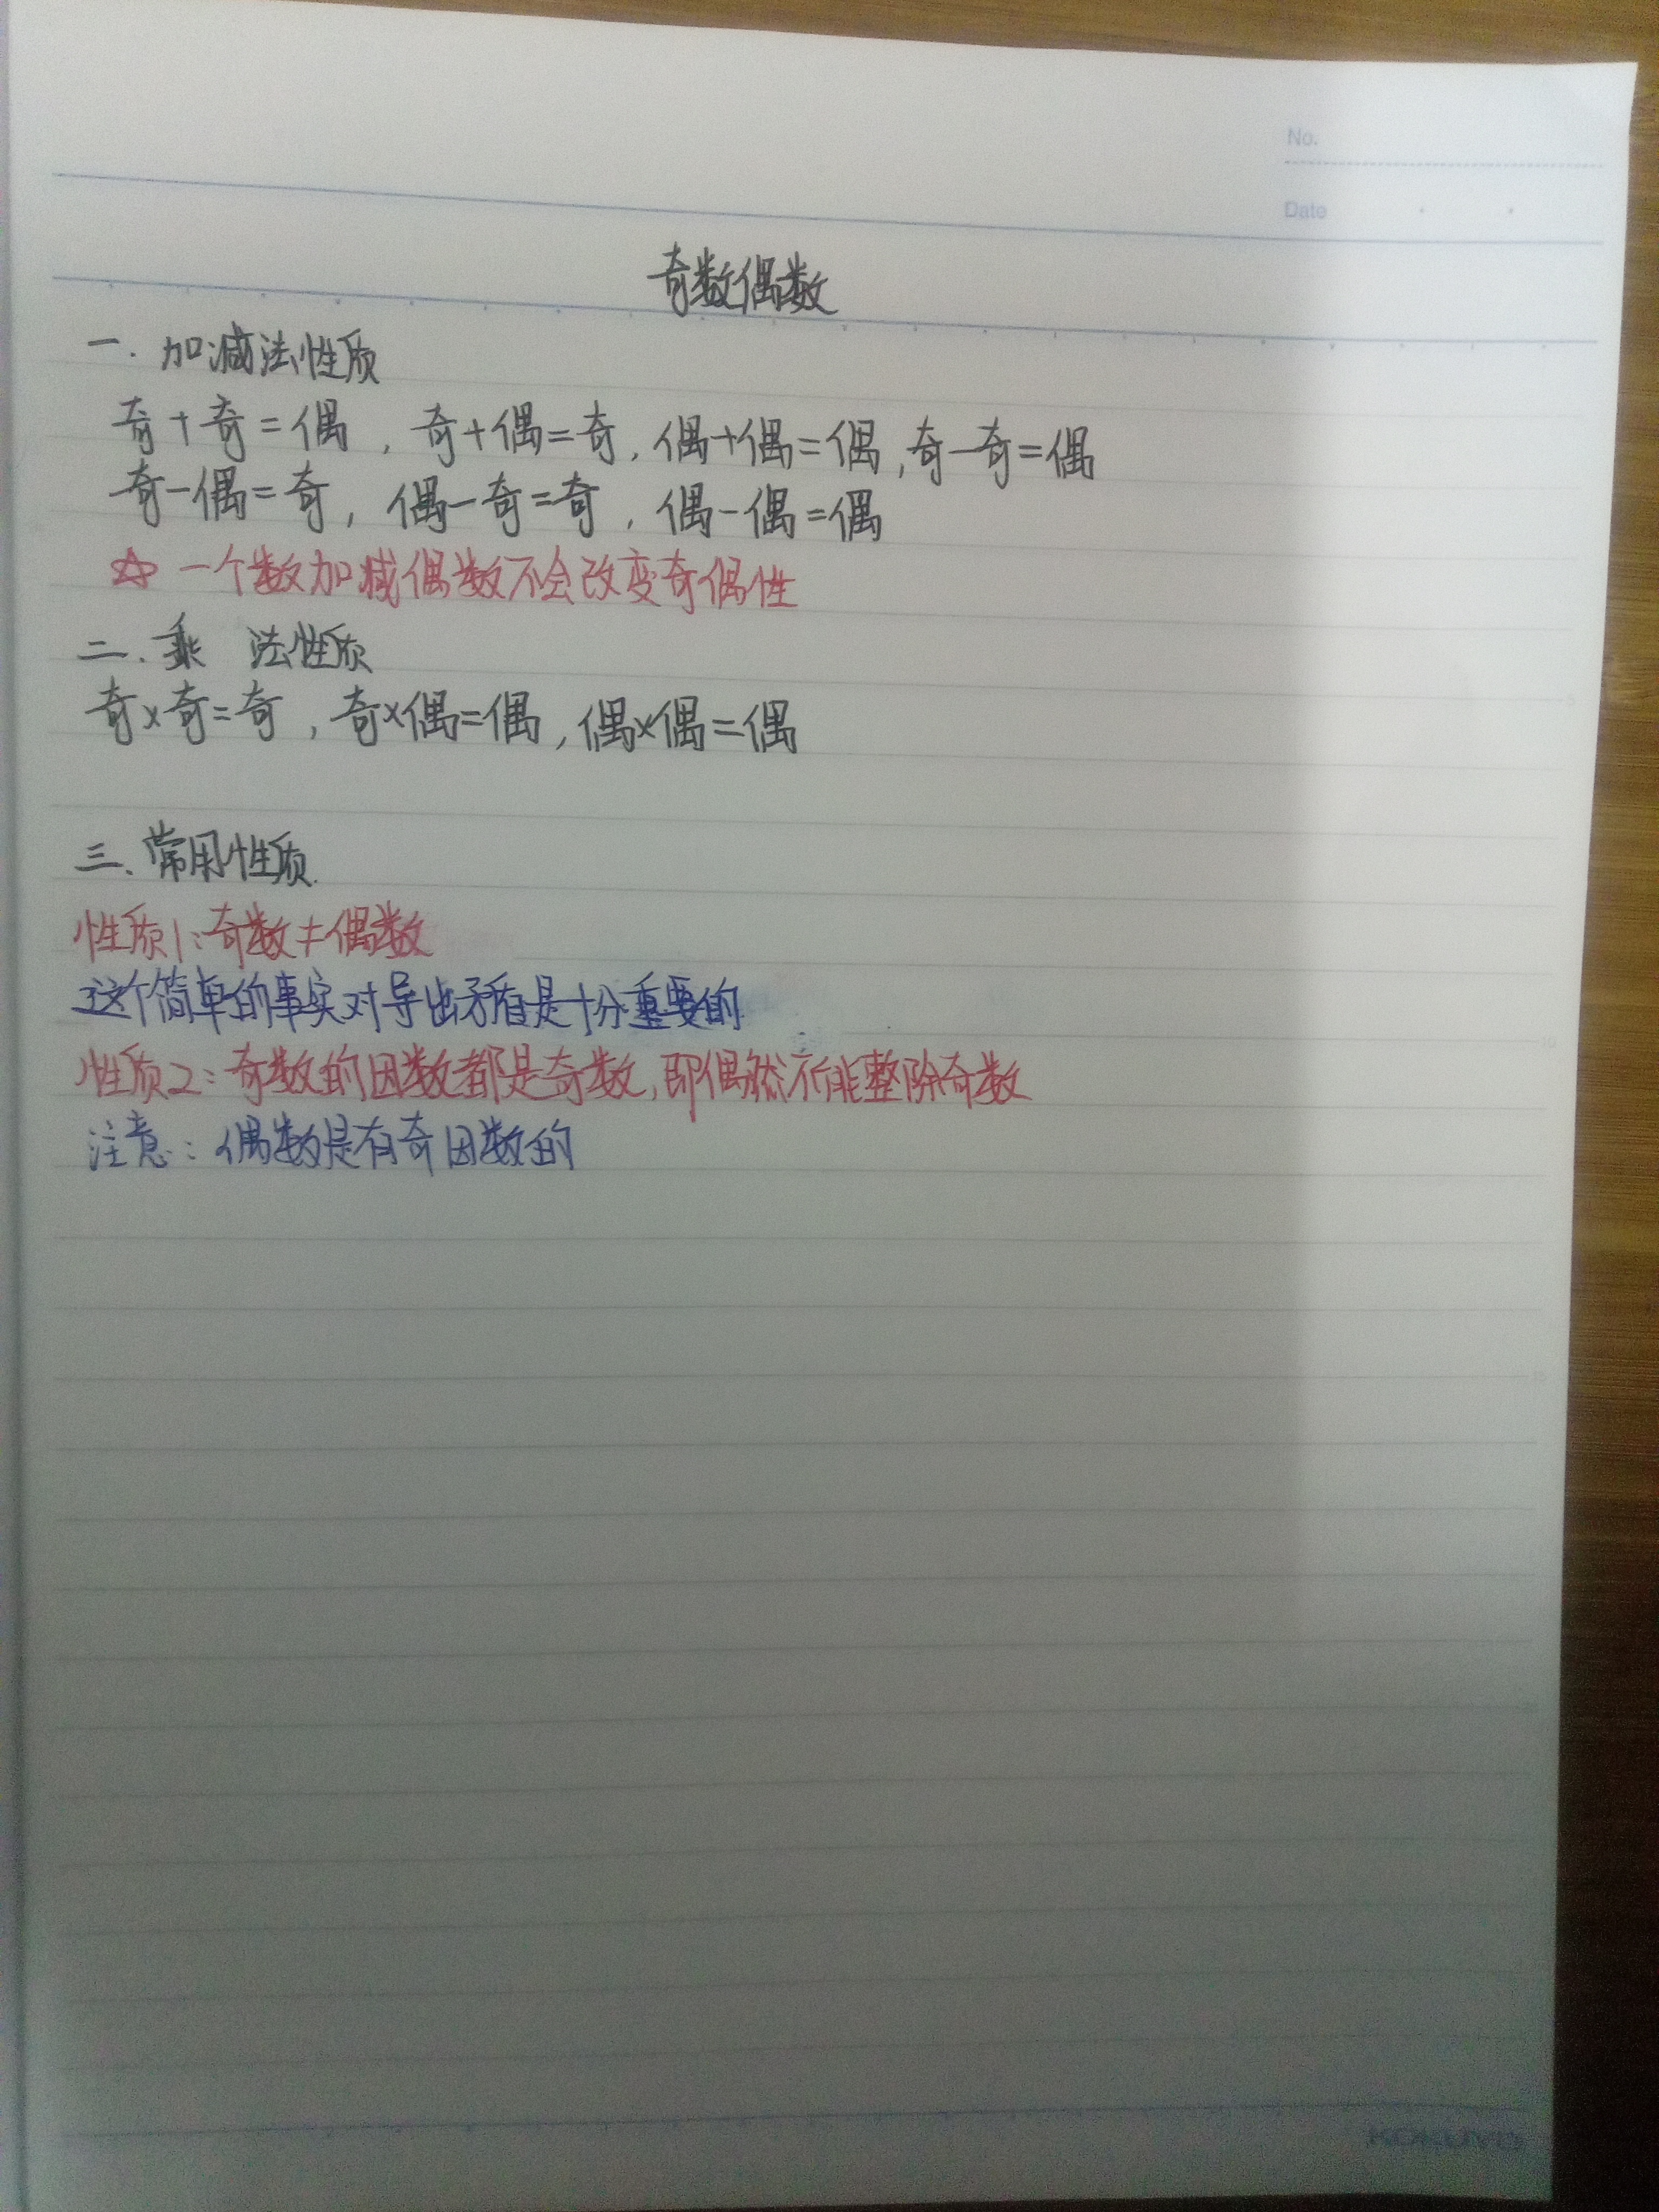 No.
Date
奇数偶数
一.加减法性质
奇+奇=偶,奇+偶=奇,偶+偶=偶,奇-奇=偶
奇-偶=奇,偶-奇=奇,偶-偶=偶
☆一个数加减偶数不会改变奇偶性
二.乘 法性质
奇×奇=奇,奇×偶=偶,偶×偶=偶
三.常用性质.
性质1:奇数≠偶数
这个简单的事实对导出矛盾是十分重要的
性质2:奇数的因数都是奇数,即偶然不能整除奇数
注意:偶数是有奇因数的
KOKUYO